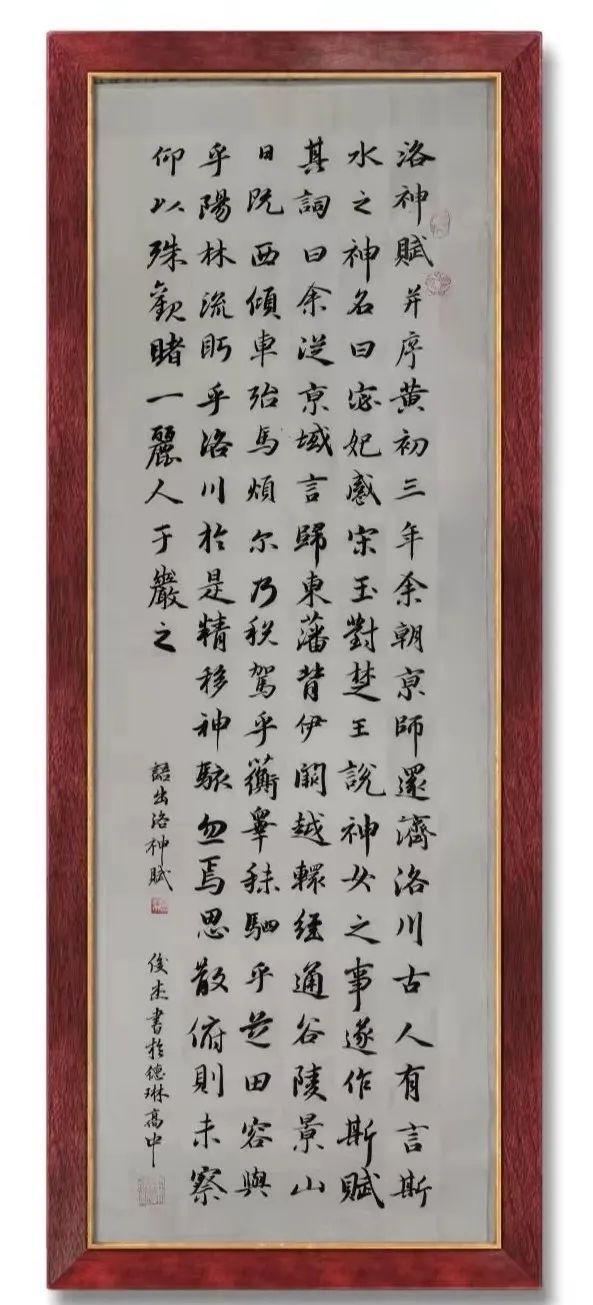 洛神賦并序黄初三年余朝京師還濟洛川古人有言斯
水之神名曰宓妃感宋玉對楚王說神女之事遂作斯賦
其詞曰余従京域言歸東藩背伊闕越轘經通谷陵景山
日既西傾車殆馬煩尔乃税駕乎蘅皋秣駟乎芝田容與
乎陽林流眄乎洛川於是精移神駭忽焉思散俯則未察
仰以殊觀睹一麗人于巖之
語出洛神賦
俊杰書於德琳高中